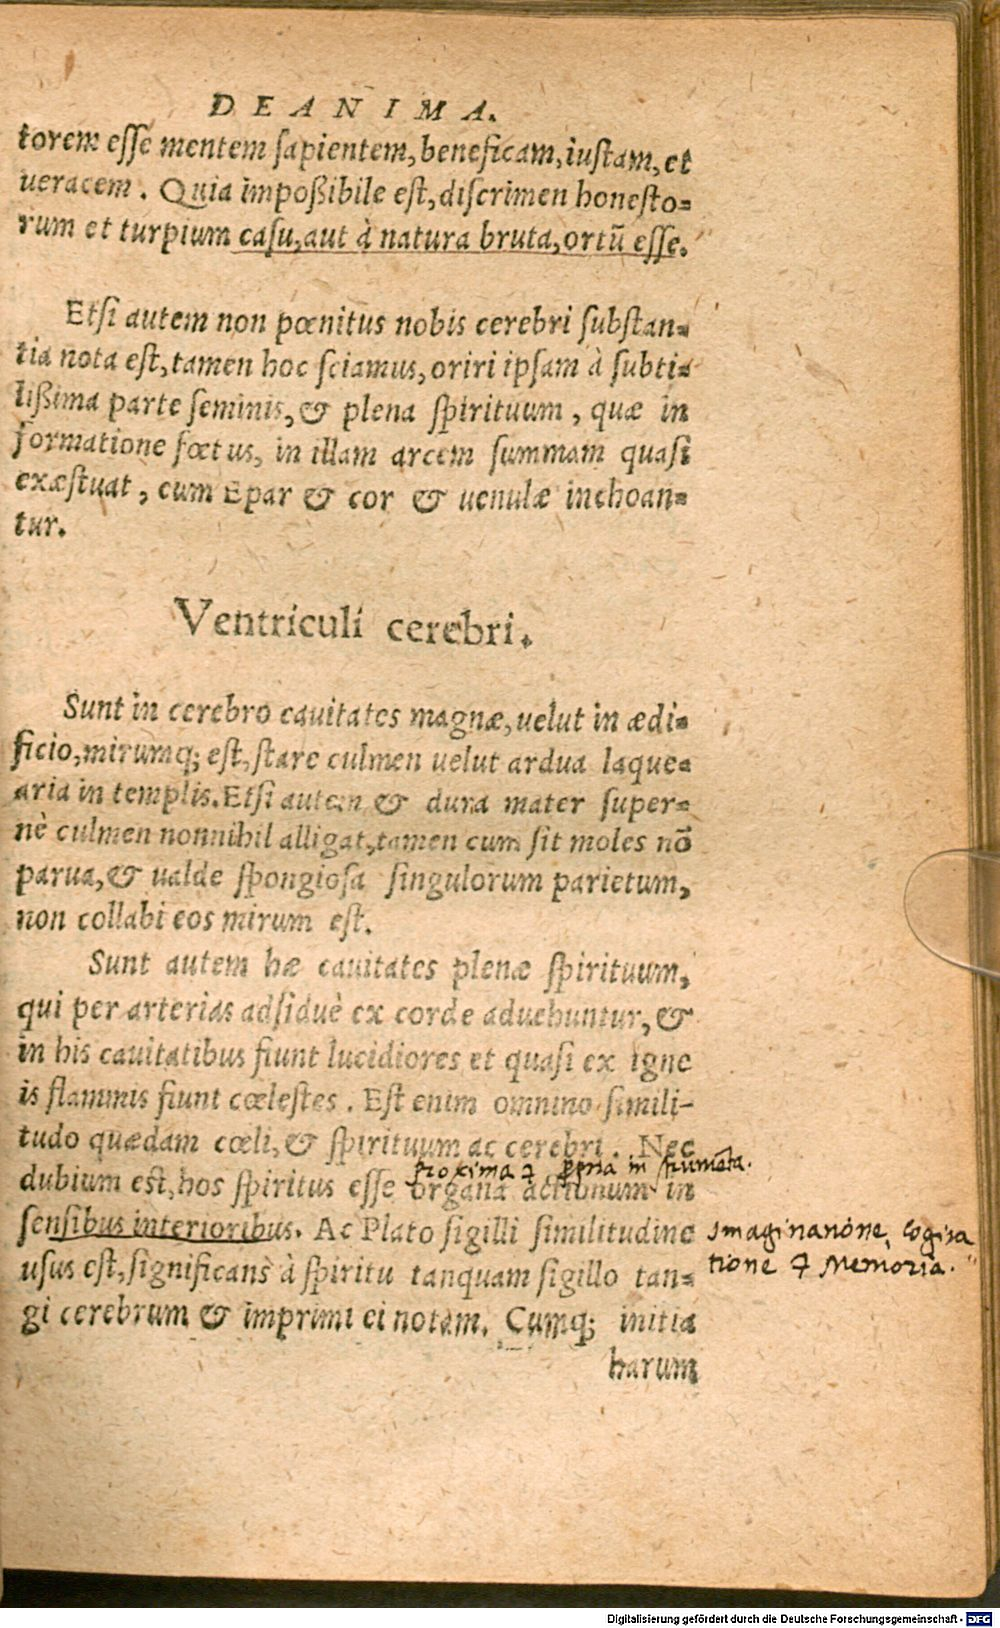 DE ANIMA.
torem eſſe mentem ſapientem, beneficam, iuſtam, et
ueracem. Quia impoßibile eſt, diſcrimen honeſto=
rum et turpium caſu, aut à natura bruta, ortũ eſſe.
Etſi autem non pœnitus nobis cerebri ſubſtan=
tia nota eſt, tamen hoc ſciamus, oriri ipſam à ſubti=
lißima parte ſeminis, & plena ſpirituum, quæ in
formatione fœtus, in illam arcem ſummam quaſi
exæſtuat, cum Epar & cor & uenulæ inchoan=
tur.
Ventriculi cerebri.
Sunt in cerebro cauitates magnæ, uelut in ædi=
ficio, mirumq; eſt, ſtare culmen uelut ardua laque=
aria in templis. Etſi autem & dura mater ſuper=
nè culmen nonnihil alligat, tamen cum ſit moles nõ
parua, & ualde ſpongioſa ſingulorum parietum,
non collabi eos mirum eſt.
Sunt autem hæ cauitates plenæ ſpirituum,
qui per arterias adſiduè ex corde aduehuntur, &
in his cauitatibus fiunt lucidiores et quaſi ex igne
is flammis fiunt cœleſtes. Eſt enim omnino ſimili-
tudo quædam cœli, & ſpirituum ac cerebri. Nec
proxima & ppria in strumẽta.
dubium eſt, hos ſpiritus eſſe organa actionum in
ſenſibus interioribus. Ac Plato ſigilli ſimilitudine
Imaginanõne, Cogita
uſus eſt, ſignificans à ſpiritu tanquam ſigillo tan=
tione & Memoria.
gi cerebrum & imprimi ei notam. Cumq; initia
harum
Digitalisierung gefördert durch die Deutsche Forschungsgemeinschaft - DFG